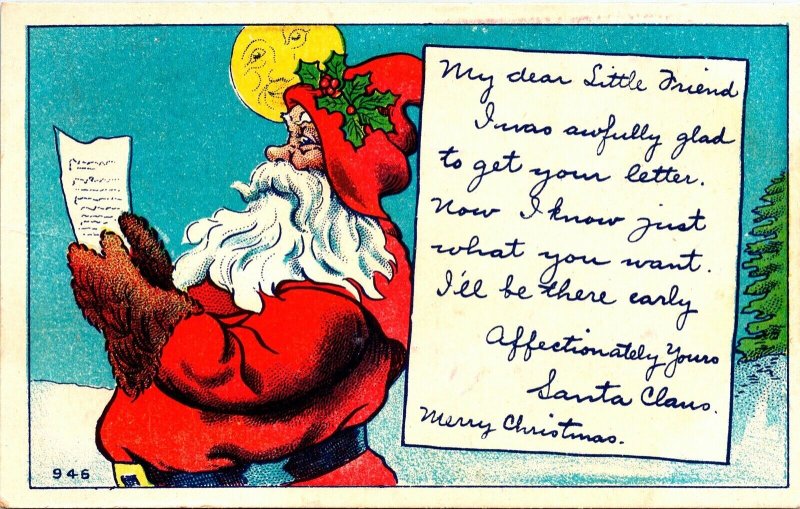 My dear Little Friend
I was awfully glad
to get your letter.
Now I know just
what you want.
I'll be there early
Affectionately Yours
Santa Claus.
Merry Christmas.
946